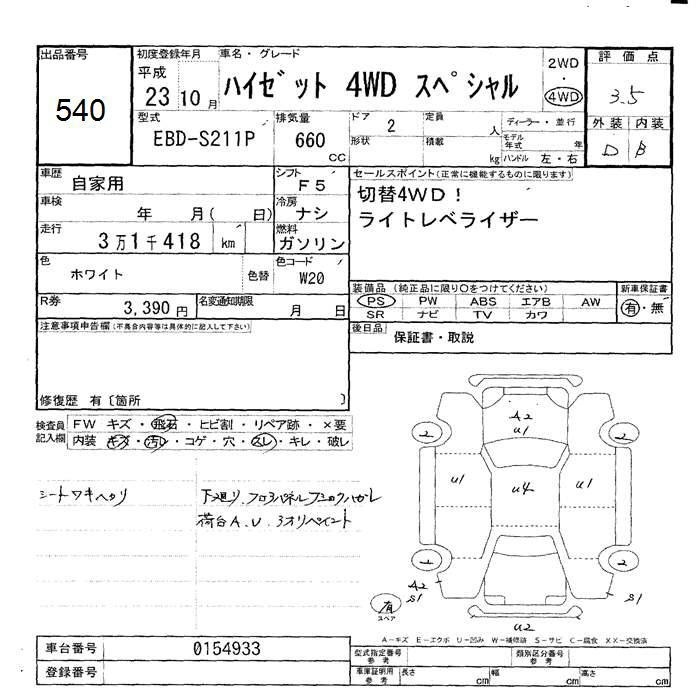 出品番号 初度登録年月 車名・グレード 2WD 評価点
平成 ・
540 23 10月 ハイゼット 4WD スペシャル 4WD 3.5
型式 排気量 ドア 2 定員 人 ディーラー・並行 外装 内装
EBD-S211P 660 cc 形状 積載 kg モデル年式 年 D B
ハンドル 左・右
車歴 自家用 シフト F5 セールスポイント(正常に機能するものに限ります)
車検 年 月( 日) 冷房 ナシ 切替4WD!
走行 3万1千418 km 燃料 ガソリン ライトレベライザー
色 ホワイト 色替 色コード W20
装備品(純正品に限り○をつけてください) 新車保証書
R券 3,390円 名変通知期限 月 日 PS PW ABS エアB AW 有・無
SR ナビ TV カワ
注意事項申告欄(不具合内容等は具体的に記入して下さい) 後日品 保証書・取説
修復歴 有〔箇所 〕
検査員記入欄 FW キズ・飛石・ヒビ割・リペア跡・×要
内装 キズ・汚レ・コゲ・穴・スレ・キレ・破レ
A2
U1
2 2
U1 U4 U1
シートワキヘタリ 下廻リ、フロアパネル
荷台A.U.
2 2
A2
S1 S1
有
スペア
U2
A-キズ E-エクボ U-凹み W-補修跡 S-サビ C-腐食 XX-交換済
車台番号 0154933 型式指定番号 参考 類別区分番号 参考
登録番号 車庫証明用 参考 長さ cm 幅 cm 高さ cm